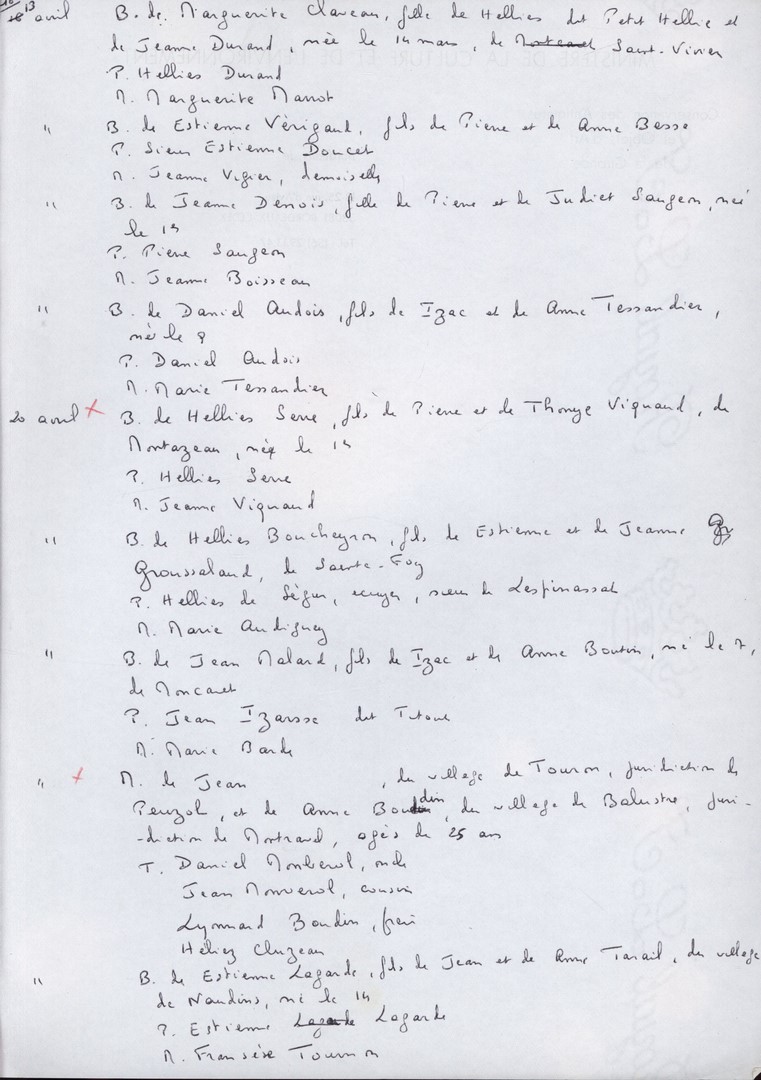 13 avril B. de Marguerite Claveau, fille de Hellies dit Petit Hellie et
de Jeanne Durand, née le 14 mars, de Saint-Vivien
P. Hellies Durand
M. Marguerite Marrot
" B. de Estienne Vérigaud, fils de Pierre et de Anne Besse
P. Sieur Estienne Doucet
M. Jeanne Vigier, demoiselle
" B. de Jeanne Denois, fille de Pierre et de Judict Saugeon, née
le 14
P. Pierre Saugeon
M. Jeanne Boisseau
" B. de Daniel Audois, fils de Izac et de Anne Tessandier,
né le 9
P. Daniel Audois
M. Marie Tessandier
20 avril B. de Hellies Serre, fils de Pierre et de Thonye Vignaud, de
Montazeau, né le 14
P. Hellies Serre
M. Jeanne Vignaud
" B. de Hellies Boucheyron, fils de Estienne et de Jeanne
Groussaland, de Sainte-Foy
P. Hellies de Ségur, ecuyer, sieur de Lespinassat
M. Marie Audiguey
" B. de Jean Malard, fils de Izac et de Anne Boutin, né le 7,
de Moncaret
P. Jean Izarsse dit Titout
M. Marie Barde
" M. de Jean , du village de Touron, juridiction de
Penzol, et de Anne Boudin, du village de Balustre, juri-
-diction de Montravel, agés de 25 ans
T. Daniel Monberol, oncle
Jean Monverol, cousin
Lyonnard Boudin, frère
Héliez Cluzeau
" B. de Estienne Lagarde, fils de Jean et de Anne Tarail, du village
de Naudins, né le 14
P. Estienne Lagarde
M. Fransèse Tournon